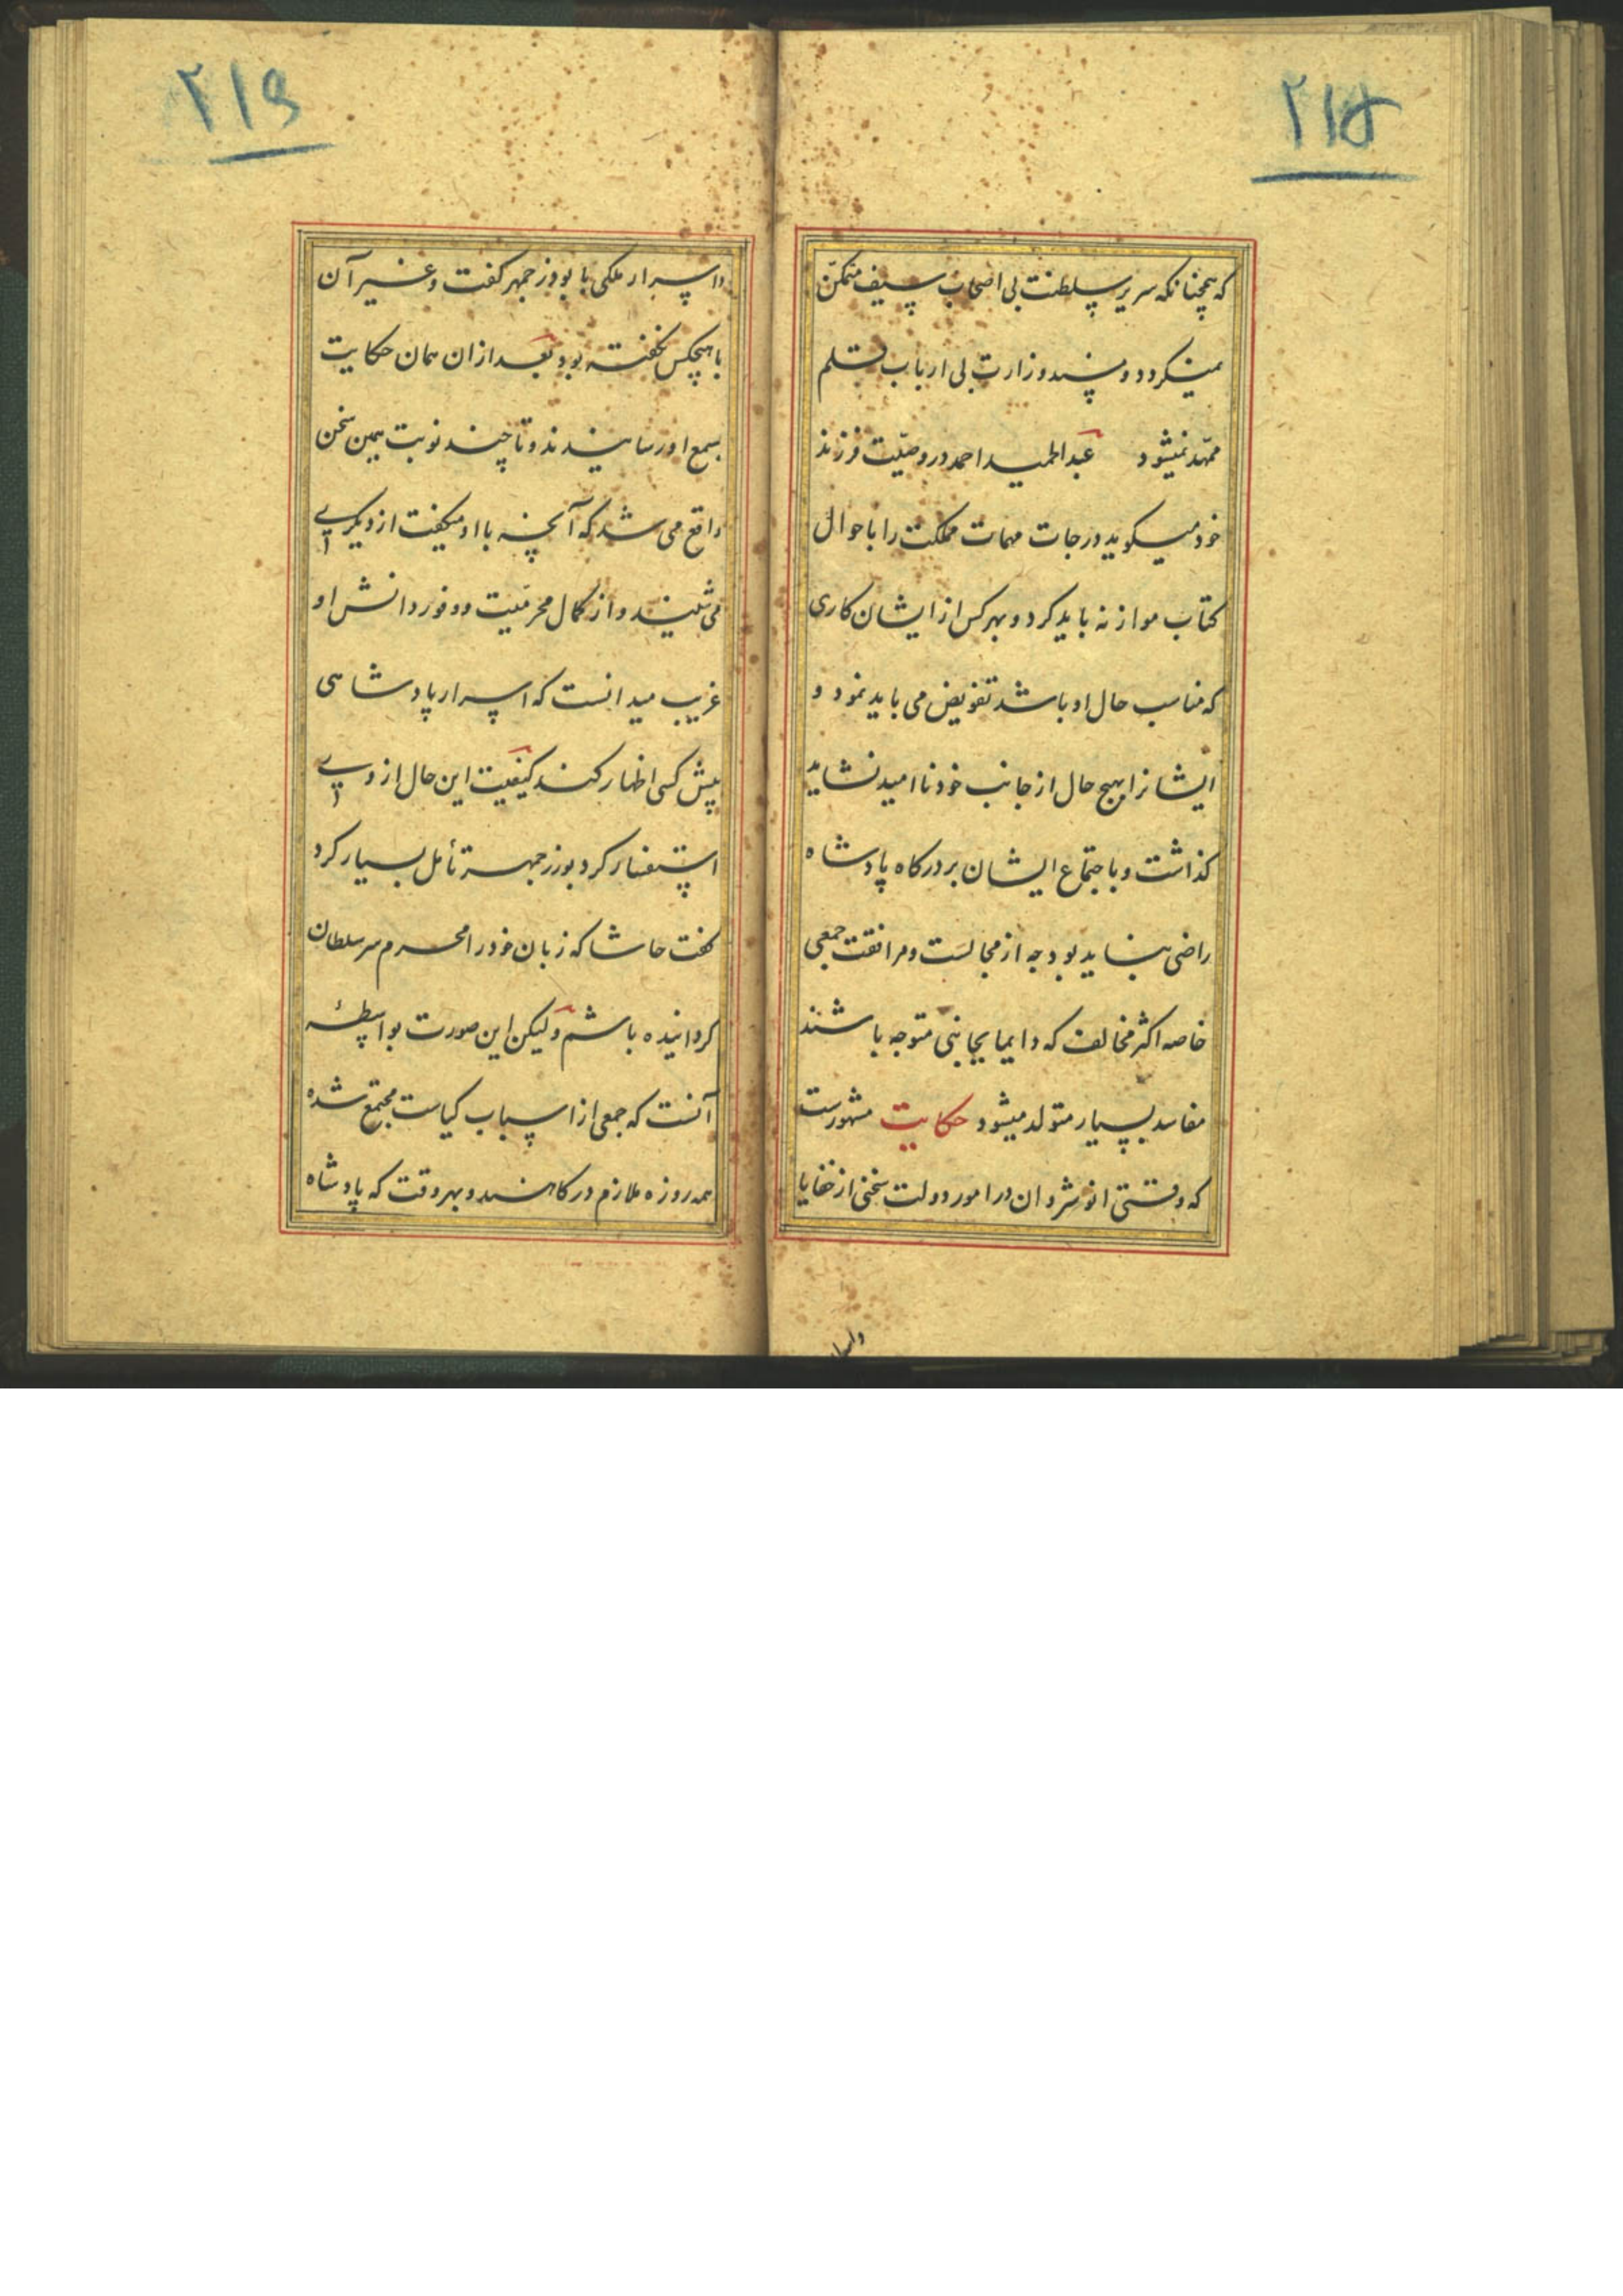 ۲۱۵
که همچنانکه سریر سلطنت بی اصحاب سیف متمکن
نمیکردد و مسند وزارت بی ارباب قلم
ممهد نمیشود عبدالحمید احمد در وصیت فرزند
خود میکوید درجات مهمات مملکت را باحوال
کتاب موازنه باید کرد و بهر کس از ایشان کاری
که مناسب حال او باشد تفویض می باید نمود و
ایشانرا بهیچ حال از جانب خود ناامید نشاید
کذاشت و باجتماع ایشان بر درکاه پادشاه
راضی نباید بود چه از مجالست و مرافقت جمعی
خاصه اکثر مخالف که دایما بجانبی متوجه باشند
مفاسد بسیار متولد میشود حکایت مشهورست
که وقتی انوشروان در امور دولت سخنی از خفایا
۲۱۶
و اسرار ملکی با بوذرجمهر کفت و غیر آن
با هیچکس نکفته بود بعد از ان همان حکایت
بسمع او رسانیدند و تا چند نوبت همین سخن
واقع می شد که آنچه با او میکفت از دیکری
می شنید و از کمال محرمیت و وفور دانش او
غریب میدانست که اسرار پادشاهی
پیش کسی اظهار کند کیفیت این حال از وی
استفسار کرد بوزرجمهر تأمل بسیار کرد
کفت حاشا که زبان خود را محرم سر سلطان
کردانیده باشم ولیکن این صورت بواسطهٔ
آنست که جمعی از اسباب کیاست مجتمع شده
همه روزه ملازم درکاهند و بهر وقت که پادشاه